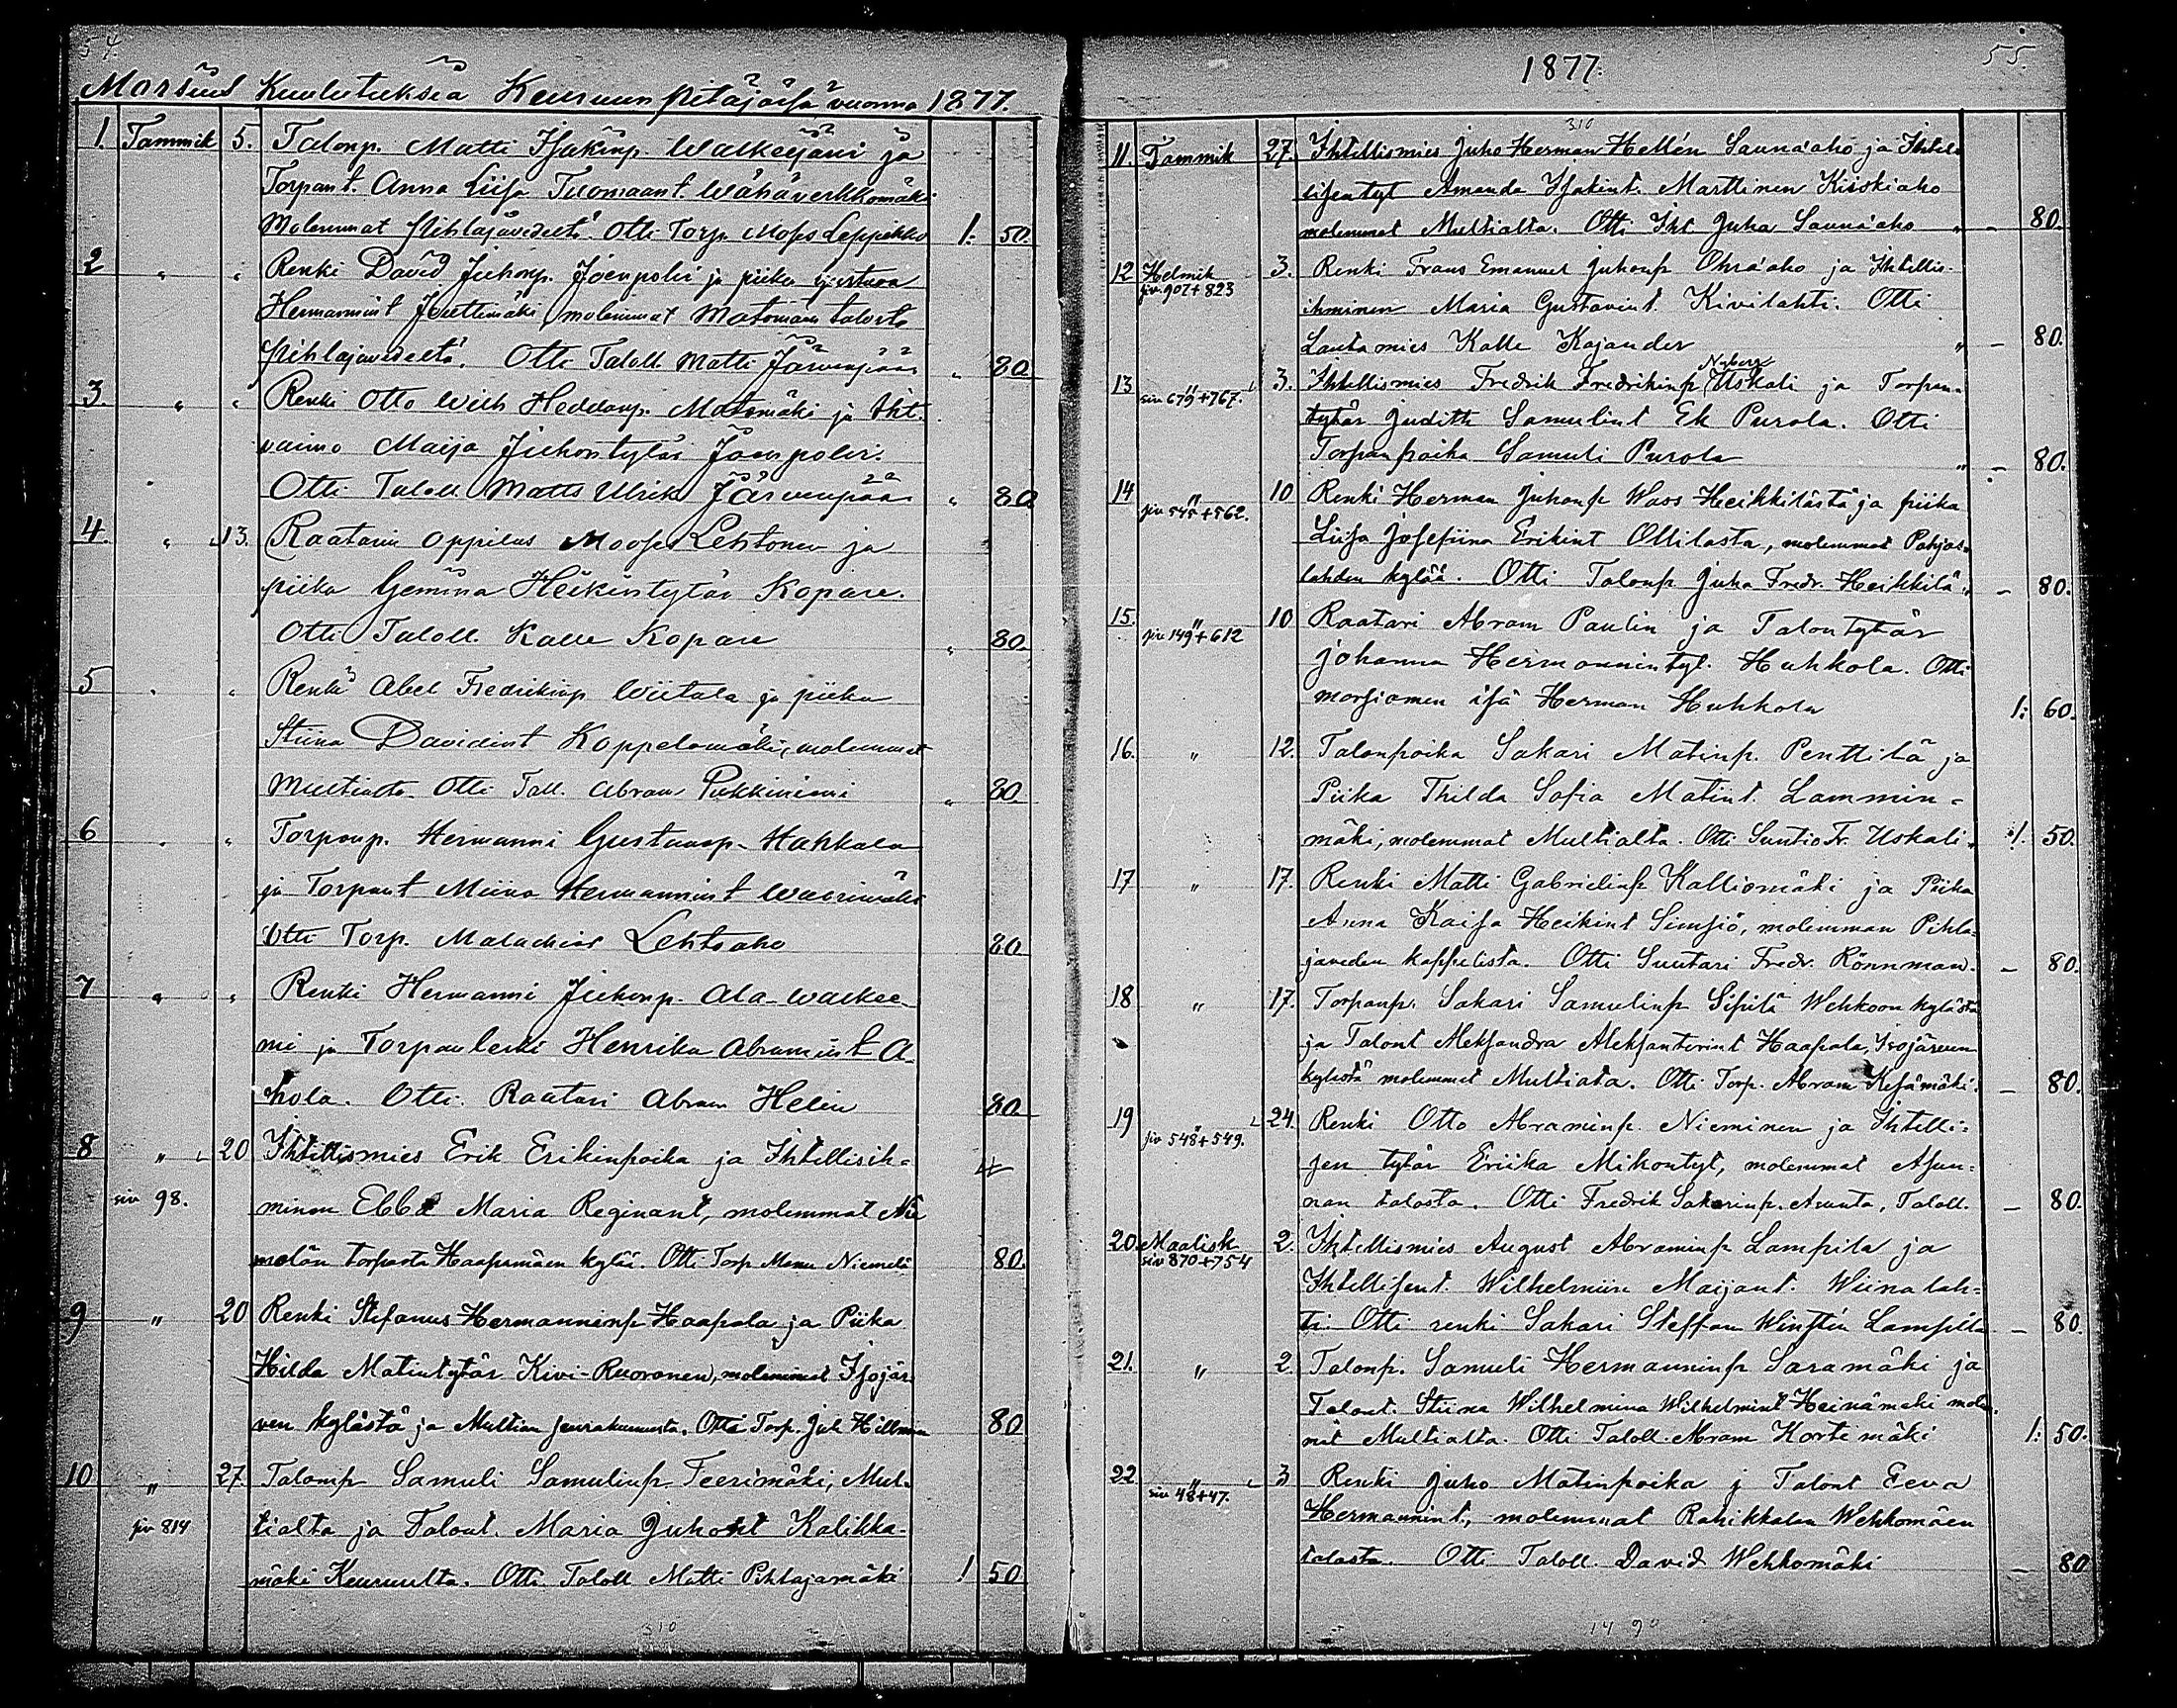 54.
Morsius Kuulutuksia Keuruun pitäjäsä vuonna 1877.
1. Tammik 5. Talonp. Matti Isakinp. Walkeejärvi ja
Torpant. Anna Liisa Tuomaant. Wähäverkkomäki
Molemmat Pihlajavedeltä. Otti Torp. Moses Leppikko 1: 50.
2 " " Renki David Juhonp. Joenpolvi ja piika Justava
Hermannint Jouttimäki, molemmat Matomäen talosta
Pihlajavedeltä. Otti Taloll. Matti Järvenpää " 80
3. " " Renki Otto Wilh Heddanp. Matomäki ja Iht.
vaimo Maija Juhontytär Joenpolvi.
Otti Taloll Matts Ulrik Järvenpää " 80.
4. " 13. Raatarin oppilas Moses Lehtonen ja
piika Gemina Heikintytär Kopare.
Otti Taloll. Kalle Kopare " 80.
5 " " Renki Abel Fredrikinp Wiitala ja piika
Stiina Davidint Koppelomäki, molemmat
Multialta Otti Tall. Abram Pukkiniemi " 80.
6 " " Torponp. Hermanni Gustaanp. Hakkala
ja Torpant Miina Hermannint Wuorimäki
Otti Torp. Malachias Lehtoaho 80.
7 " " Renki Hermanni Juhonp. Ala-walkee-
mi ja Torpanleski Henrika Abramint A-
hola. Otti Raatari Abram Helin 80
8 " 20 Ihtellismies Erik Erikinpoika ja Ihtellisih-
siv 98. minen Ebba Maria Reginant, molemmat Nie
melän torpasta Haapamäen kylää. Otti Torp Manu Niemelä 80.
9 " 20 Renki Stefanus Hermanninp Haapala ja Piika
Hilda Matintytär Kivi-Ruoronen, molemmat Isojär
ven kylästä ja Multian seurakunnasta. Otti Torp. Juh Hillman 80
10 " 27. Talonp Samuli Samulinp. Teerimäki, Mul-
siv 814 tialta ja Talont. Maria Juhont Kalikka-
mäki Keuruulta. Otti Taloll Matti Pihlajamäki 1 50
310
1877.
55.
310
11. Tammik 27. Ihtellismies Juho Herman Hellén Sauna'aho ja Ihtel-
lisentyt Amanda Isakint. Marttinen Kiiskiaho
molemmat Multialta. Otti Iht Juha Sauna'aho " - 80.
12 Helmik 3. Renki Frans Emanuel Juhonp Ohra'aho ja Ihtellis-
siv. 907+823 ihminen Maria Gustavint. Kivilahti. Otti
Lautamies Kalle Kajander " - 80.
Nyberg
13 " 3. Ihtellismies Fredrik Fredrikinp Uskali ja Torpan-
siv 679+767. tytär Judith Samulint Ek Purola. Otti
Torpanpoika Samuli Purola " - 80.
14 " 10 Renki Herman Juhonp Wass Heikkilästä ja piika
siv 545+562. Liisa Josefiina Erikint Ollilasta, molemmat Pohjas-
lahden kylää. Otti Talonp Juha Fredr. Heikkilä " - 80.
15. " 10 Raatari Abram Paulin ja Talontytär
siv 149+612 Johanna Hermannintyt. Huhkola. Otti
morsiamen isä Herman Huhkola 1: 60.
16. " 12. Talonpoika Sakari Matinp. Penttilä ja
Piika Thilda Sofia Matint. Lammin-
mäki, molemmat Multialta. Otti Suntio Fr. Uskali. 1. 50.
17 " 17. Renki Matti Gabrielinp Kalliomäki ja Piika
Anna Kaisa Heikint Simsiö, molemman Pihla-
javeden kappelista. Otti Suutari Fredr. Rönnman. - 80.
18 " 17. Torpanp. Sakari Samulinp Sipilä Wehkoon kylästä
ja Talont Aleksandra Aleksanterint Haapala, Isojärven
kylästä molemmat Multiata. Otti Torp. Abram Kesämäki. - 80.
19 " 24. Renki Otto Abraminp. Nieminen ja Ihtelli-
siv 548+549. sen tytär Eriika Mikontyt, molemmat Asun-
nan talosta. Otti Fredrik Sakarinp. Asunta, Taloll. - 80.
20. Maalisk 2. Ihtellismies August Abraminp Lampila ja
siv 870+754 Ihtellisent. Wilhelmiin Maijant. Wiinalah-
ti Otti renki Sakari Steffan Winstén Lampila - 80.
21. " 2 Talonp. Samuli Hermanninp Saramäki ja
Talont. Stiina Wilhelmina Wilhelmint Heinämäki mole-
mat Multialta. Otti Taloll. Abram Kortemäki 1: 50.
22 " 3 Renki Juho Matinpoika j Talont Eeva
siv 48+47. Hermannint, molemmat Rahikkalan Wehkomäen
talosta. Otti Taloll. David Wehkomäki - 80
14 90